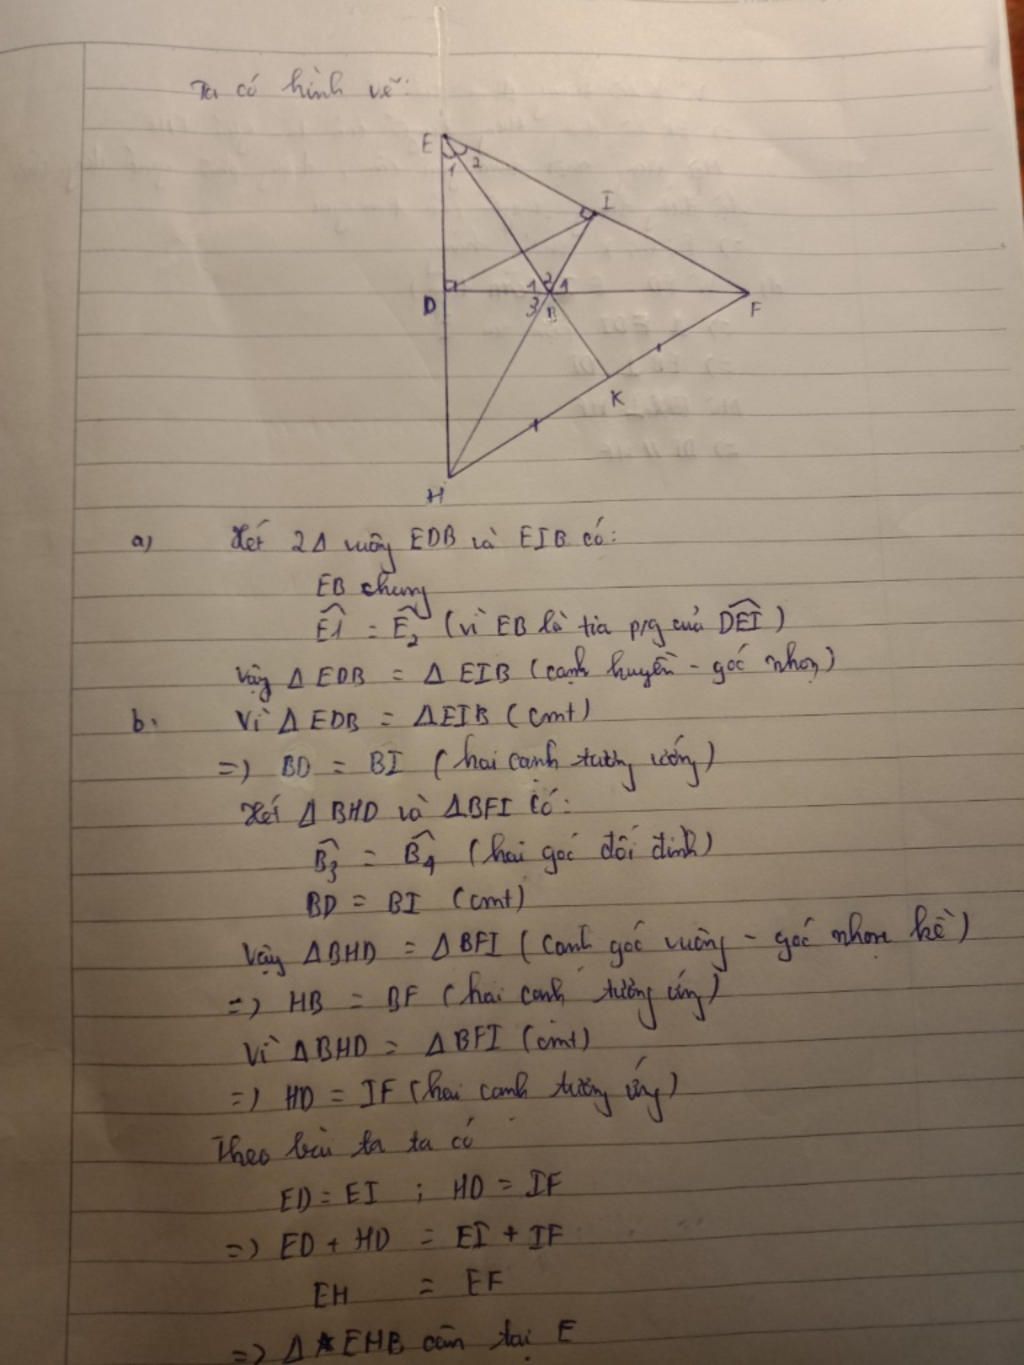 Ta có hình vẽ:
E
1 2
I
D
1 2 1
3
B
F
K
H
a) Xét 2Δ vuông EDB và EIB có:
EB chung
Ê1 = Ê2 (vì EB là tia p/g của DÊI)
Vậy Δ EDB = Δ EIB (cạnh huyền - góc nhọn)
b. Vì Δ EDB = ΔEIB (cmt)
=> BD = BI (hai cạnh tương ướng)
Xét Δ BHD và ΔBFI có:
B̂3 = B̂4 (hai góc đối đỉnh)
BD = BI (cmt)
Vậy ΔBHD = ΔBFI (cạnh góc vuông - góc nhọn kề)
=> HB = BF (hai cạnh tương ứng)
Vì ΔBHD = ΔBFI (cmt)
=> HD = IF (hai cạnh tương ứng)
Theo bài ta ta có
ED = EI ; HD = IF
=> ED + HD = EI + IF
EH = EF
=> Δ EHB cân tại E